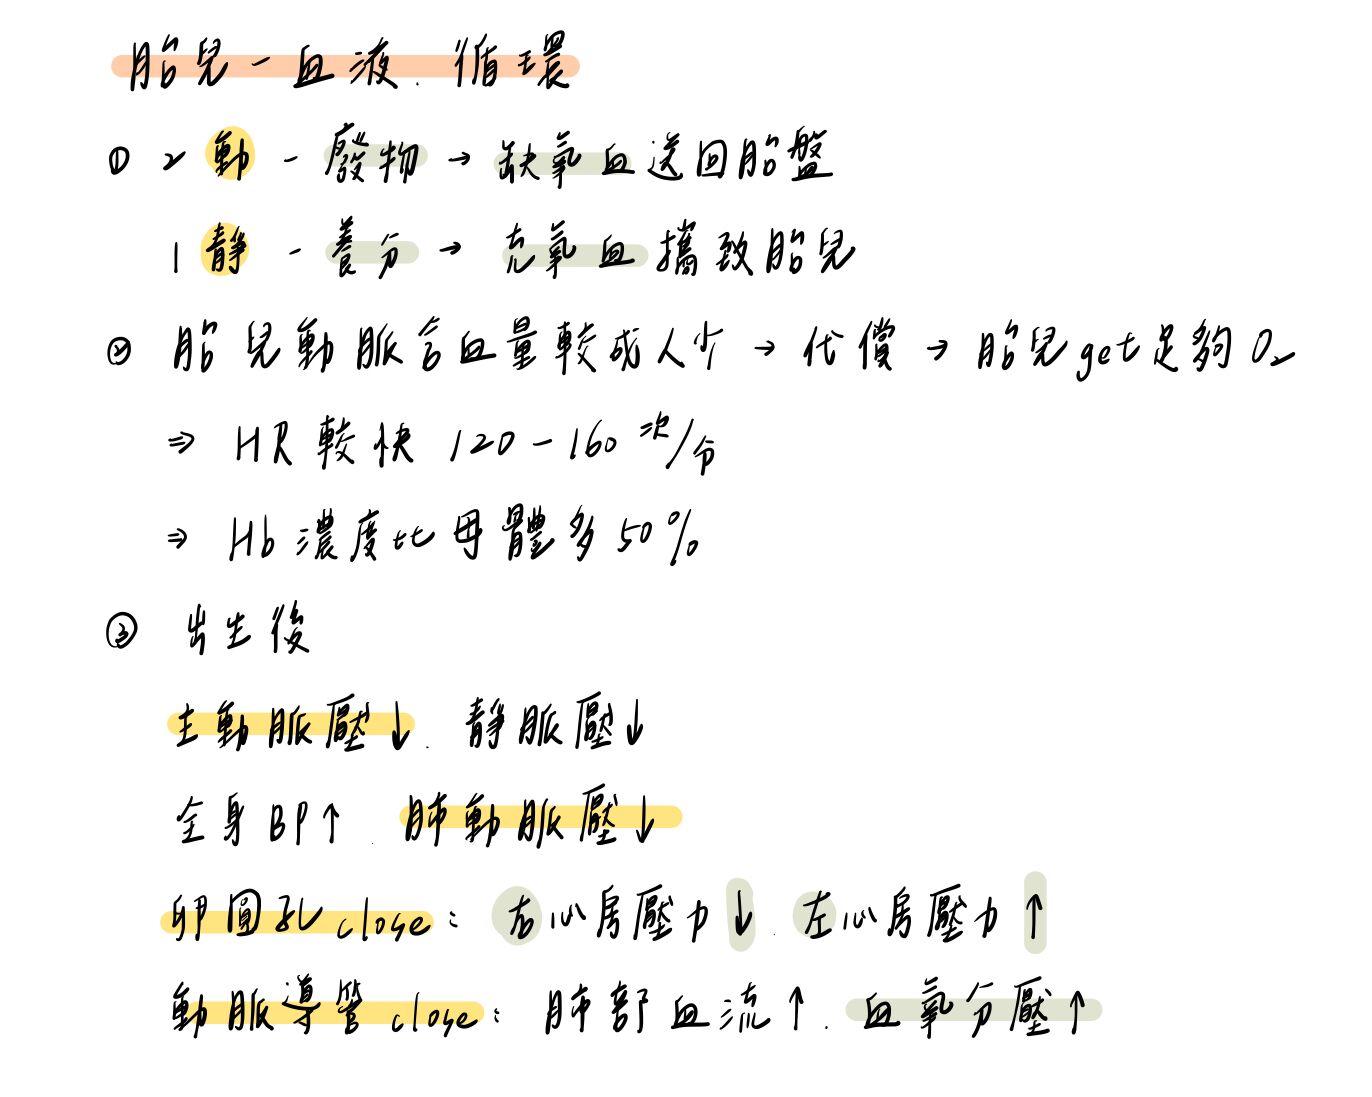 胎兒－血液.循環
① 2動 - 廢物 → 缺氧血送回胎盤
1靜 - 養分 → 充氧血攜致胎兒
② 胎兒動脈含血量較成人少 → 代償 → 胎兒get足夠O₂
⇒ HR較快 120-160次/分
⇒ Hb濃度比母體多50%
③ 出生後
主動脈壓↓. 靜脈壓↓
全身BP↑. 肺動脈壓↓
卵圓孔close: 右心房壓力↓. 左心房壓力↑
動脈導管close: 肺部血流↑. 血氧分壓↑